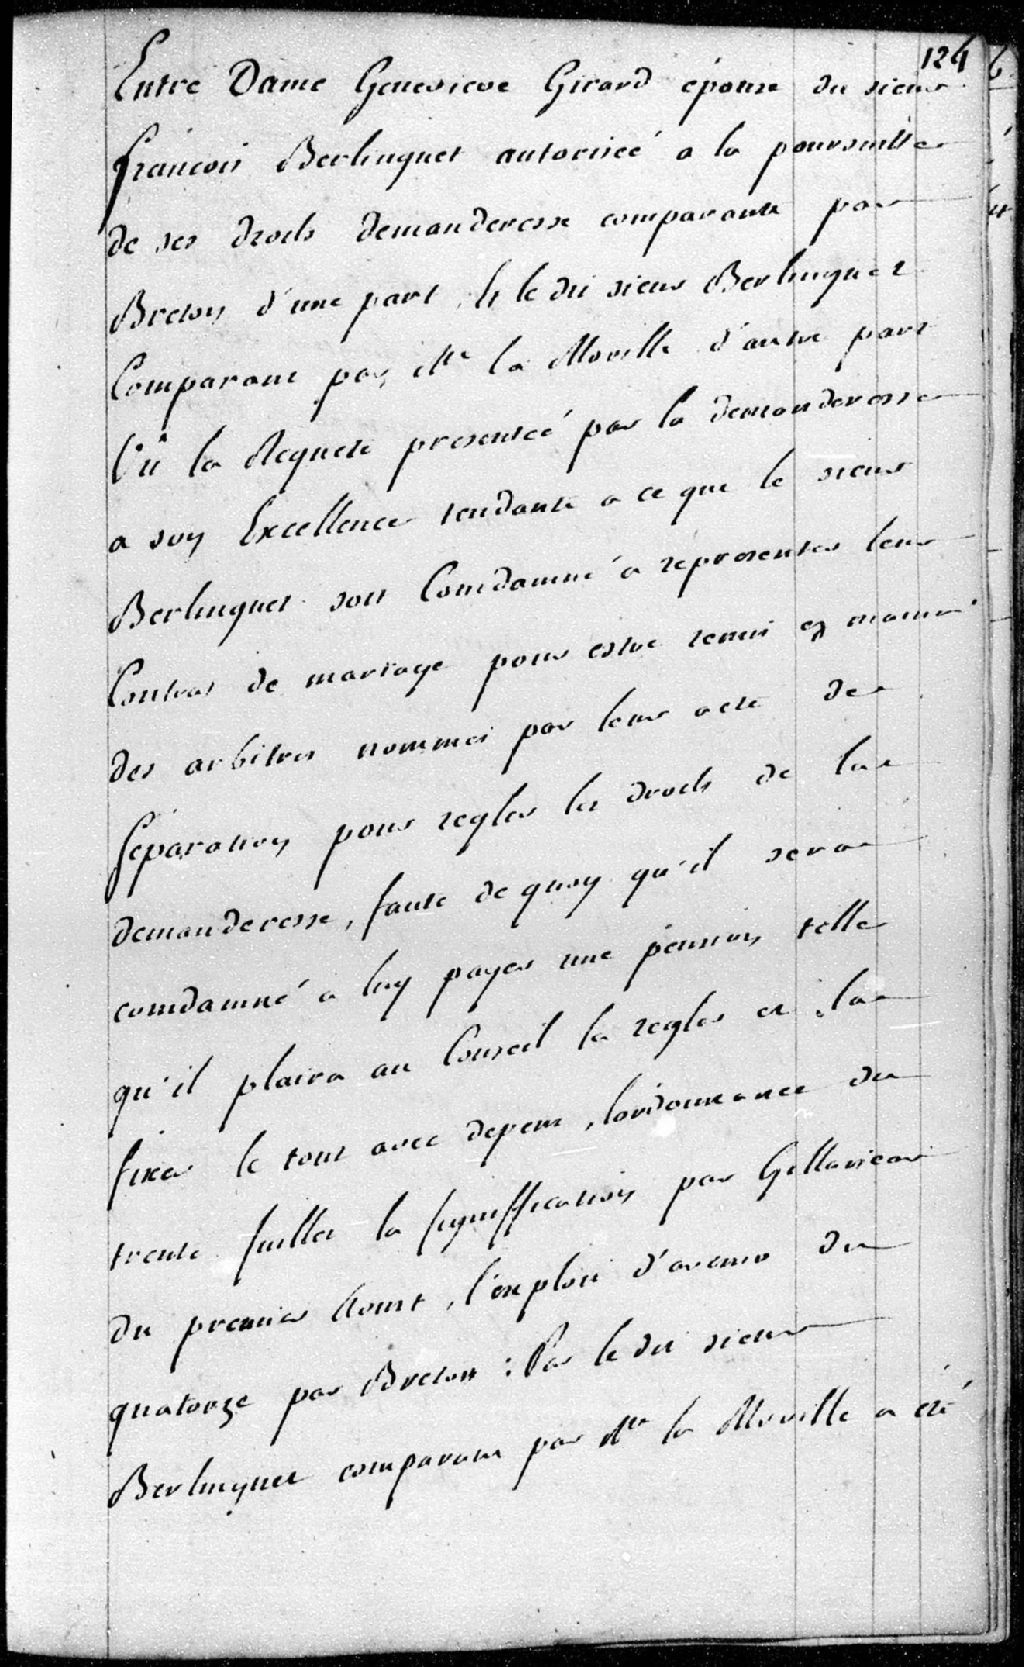 124
Entre Dame Genevieve Girard épouse du sieur
françois Berlinguet autorisée a la poursuitte
de ses droits demanderesse comparante par
Breton d'une part, et le dit sieur Berlinguet
Comparant par Mr la Moville d'autre part
Vû la Requete presenteé par la demanderesse
a son Excellence tendante a ce que le sieur
Berlinguet soit Comdamné a representer leur
Contrat de mariage pour estre remis ez mains
des arbitres nommés par leur acte de
Séparation pour regler les droits de la
demanderesse, faute de quoy qu'il sera
comdamné a luy payer une pension telle
qu'il plaira au Conseil la regler et la
fixer le tout avec depens, l'ordonnance du
trente Juillet la signiffication par
du premier Aoust, l'exploit d'avenir du
quatorze par Breton : Par le dit sieur
Berlinguet comparant par Mr la Moville a été